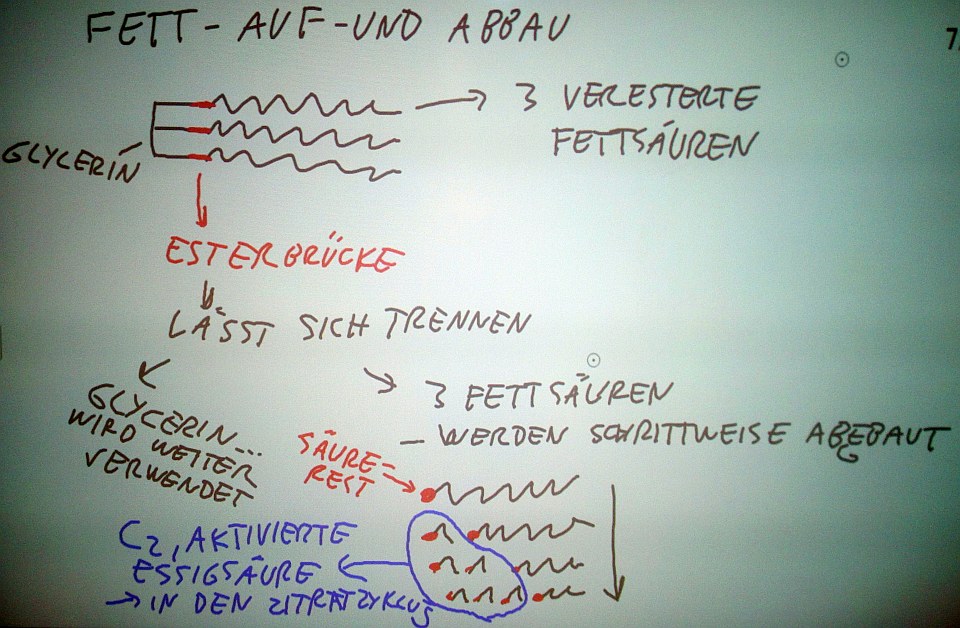 FETT-AUF-UND ABBAU
7
3 VERESTERTE
FETTSÄUREN
GLYCERIN
ESTERBRÜCKE
LÄSST SICH TRENNEN
GLYCERIN...
WIRD WEITER
VERWENDET
3 FETTSÄUREN
– WERDEN SCHRITTWEISE ABEBAUT
G
SÄURE=
REST
C2, AKTIVIERTE
ESSIGSÄURE
→ IN DEN ZITRATZYKLUS